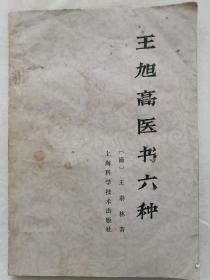 王旭高医书六种
〔清〕王泰林著
上海科学技术出版社